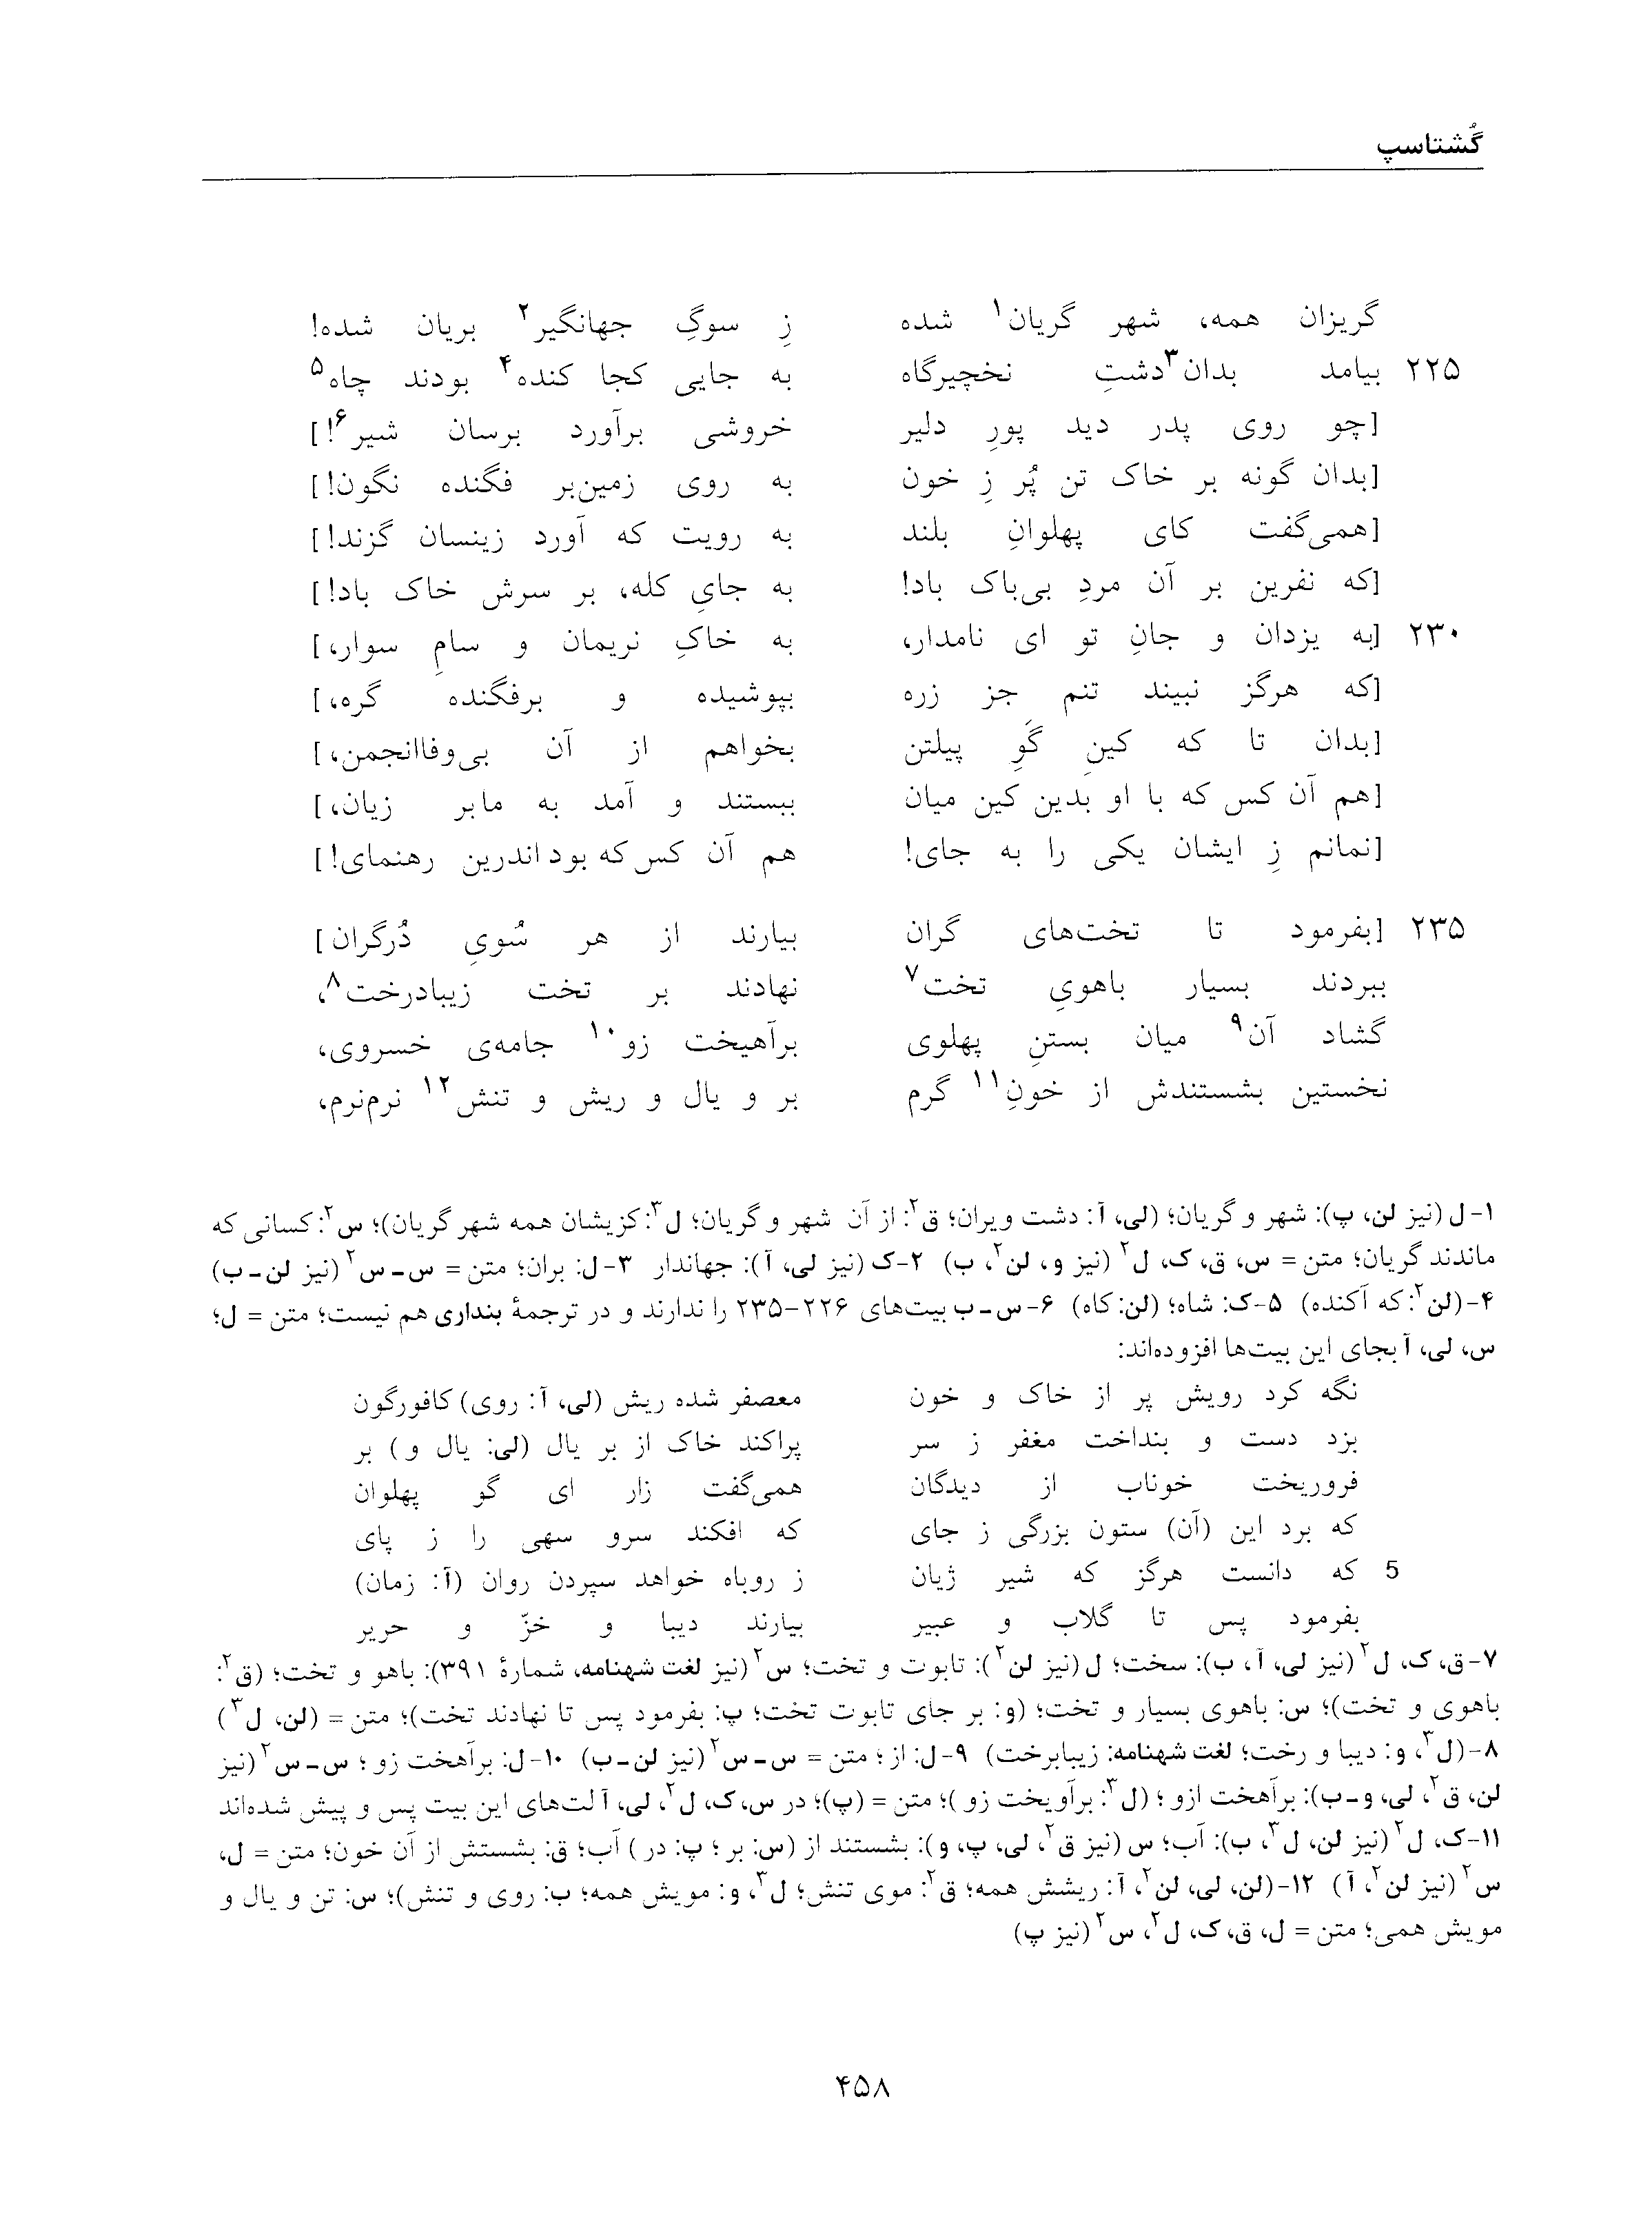 گُشتاسپ
گریزان همه، شهر گریان۱ شده زِ سوگِ جهانگیر۲ بریان شده!
۲۲۵ بیامد بدان۳ دشتِ نخچیرگاه به جایی کجا کنده۴ بودند چاه۵
[چو روی پدر دید پورِ دلیر خروشی برآورد برسان شیر۶!]
[بدان گونه بر خاک تن پُر زِ خون به روی زمین‌بر فگنده نگون!]
[همی‌گفت کای پهلوانِ بلند به رویت که آورد زینسان گزند!]
[که نفرین بر آن مردِ بی‌باک باد! به جایِ کله، بر سرش خاک باد!]
۲۳۰ [به یزدان و جانِ تو ای نامدار، به خاکِ نریمان و سامِ سوار،]
[که هرگز نبیند تنم جز زره بپوشیده و برفگنده گره،]
[بدان تا که کینِ گَوِ پیلتن بخواهم از آن بی‌وفاانجمن،]
[هم آن کس که با او بدین کین میان ببستند و آمد به مابر زیان،]
[نمانم زِ ایشان یکی را به جای! هم آن کس که بود اندرین رهنمای!]
۲۳۵ [بفرمود تا تخت‌های گران بیارند از هر سُویِ دُرگران]
ببردند بسیار باهویِ تخت۷ نهادند بر تخت زیبادرخت۸،
گشاد آن۹ میان بستنِ پهلوی برآهیخت زو۱۰ جامه‌ی خسروی،
نخستین بشستندش از خونِ۱۱ گرم بر و یال و ریش و تنش۱۲ نرم‌نرم،
۱-ل (نیز لن، پ): شهر و گریان؛ (لی، آ: دشت ویران؛ ق۲: از آن شهر و گریان؛ ل۳: کزیشان همه شهر گریان)؛ س۲: کسانی که
ماندند گریان؛ متن = س، ق، ک، ل۲ (نیز و، لن۲، ب) ۲-ک (نیز لی، آ): جهاندار ۳-ل: بران؛ متن = س-س۲ (نیز لن-ب)
۴-(لن۲: که آکنده) ۵-ک: شاه؛ (لن: کاه) ۶-س-ب بیت‌های ۲۲۶-۲۳۵ را ندارند و در ترجمهٔ بنداری هم نیست؛ متن = ل؛
س، لی، آ بجای این بیت‌ها افزوده‌اند:
نگه کرد رویش پر از خاک و خون معصفر شده ریش (لی، آ: روی) کافورگون
بزد دست و بنداخت مغفر ز سر پراکند خاک از بر یال (لی: یال و) بر
فروریخت خوناب از دیدگان همی‌گفت زار ای گو پهلوان
که برد این (آن) ستون بزرگی ز جای که افکند سرو سهی را ز پای
5 که دانست هرگز که شیر ژیان ز روباه خواهد سپردن روان (آ: زمان)
بفرمود پس تا گلاب و عبیر بیارند دیبا و خزّ و حریر
۷-ق، ک، ل۲ (نیز لی، آ، ب): سخت؛ ل (نیز لن۲): تابوت و تخت؛ س۲ (نیز لغت شهنامه، شمارهٔ ۳۹۱): باهو و تخت؛ (ق۲:
باهوی و تخت)؛ س: باهوی بسیار و تخت؛ (و: بر جای تابوت تخت؛ پ: بفرمود پس تا نهادند تخت)؛ متن = (لن، ل۳)
۸-(ل۳، و: دیبا و رخت؛ لغت شهنامه: زیبابرخت) ۹-ل: از؛ متن = س-س۲ (نیز لن-ب) ۱۰-ل: برآهخت زو؛ س-س۲ (نیز
لن، ق۲، لی، و-ب): برآهخت ازو؛ (ل۳: برآویخت زو)؛ متن = (پ)؛ در س، ک، ل۲، لی، آ لت‌های این بیت پس و پیش شده‌اند
۱۱-ک، ل۲ (نیز لن، ل۳، ب): آب؛ س (نیز ق۲، لی، پ، و): بشستند از (س: بر؛ پ: در) آب؛ ق: بشستش از آن خون؛ متن = ل،
س۲ (نیز لن۲، آ) ۱۲-(لن، لی، لن۲، آ: ریشش همه؛ ق۲: موی تنش؛ ل۳، و: مویش همه؛ ب: روی و تنش)؛ س: تن و یال و
مویش همی؛ متن = ل، ق، ک، ل۲، س۲ (نیز پ)
۴۵۸